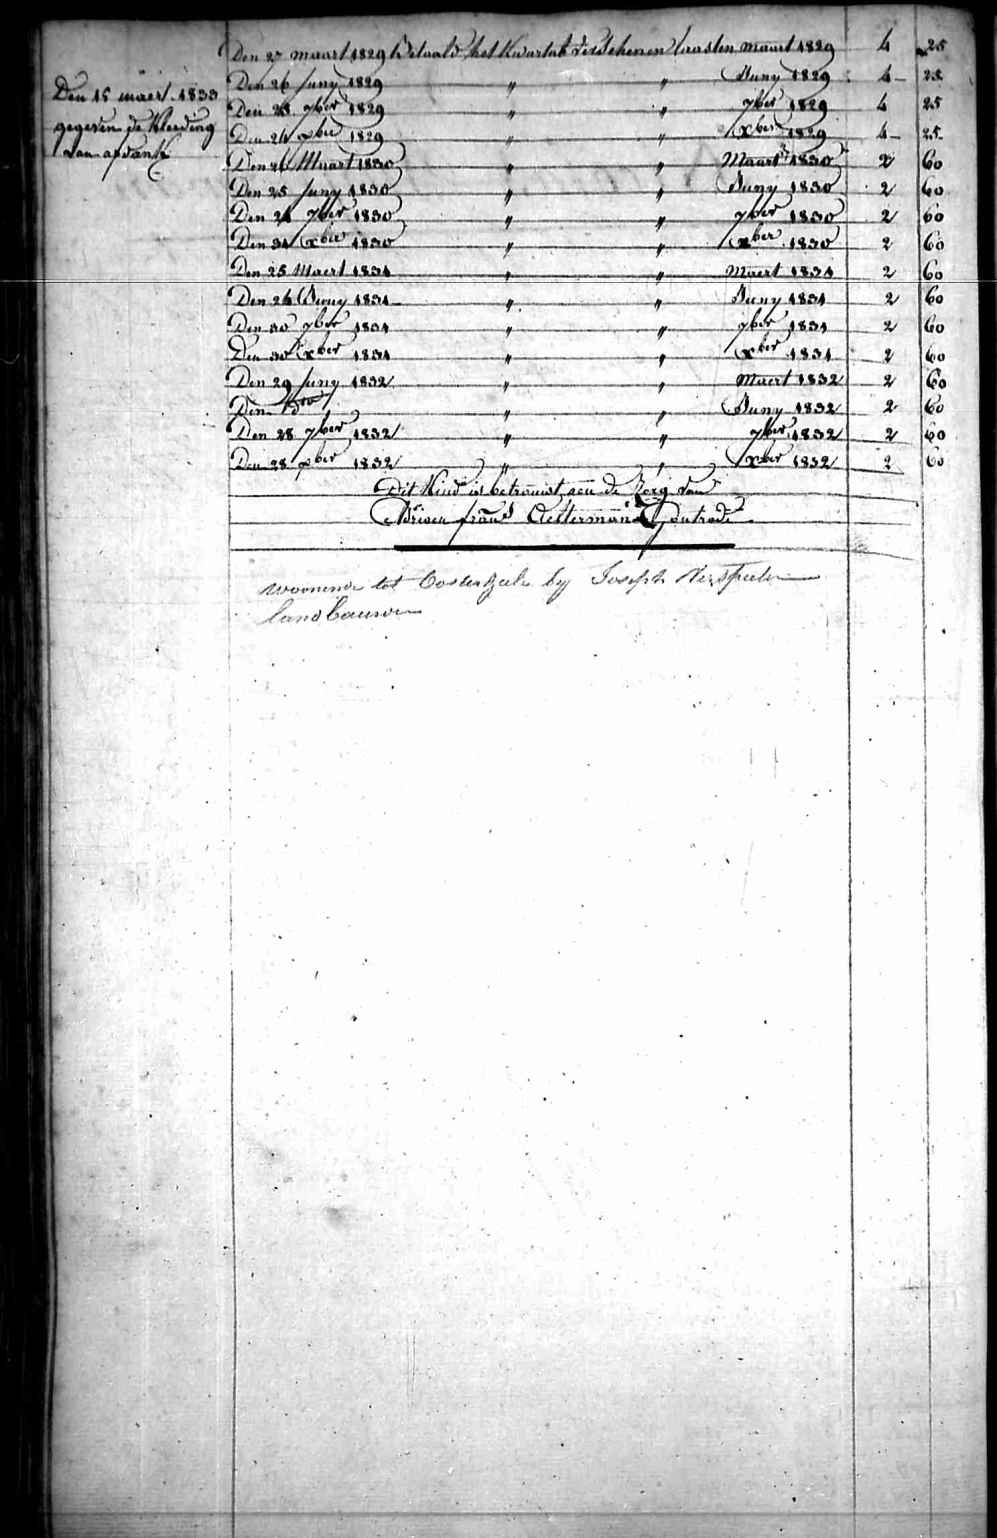 Den 15 maert 1833
gegeven de kleeding
van afdank
Den 27 maart 1829 Betaald het kwartal verschenen laasten maart 1829 4 25
Den 26 Juny 1829 " " Juny 1829 4 - 25
Den 28 7ber 1829 " " 7ber 1829 4 25
Den 24 xber 1829 " " xber 1829 4 - 25
Den 26 Maart 1830 " " Maart 1830 2 60
Den 25 Juny 1830 " " Juny 1830 2 60
Den 24 7ber 1830 " " 7ber 1830 2 60
Den 31 xber 1830 " " xber 1830 2 60
Den 25 Maert 1831 " " Maert 1831 2 60
Den 24 Juny 1831 " " Juny 1831 2 60
Den 30 7ber 1831 " " 7ber 1831 2 60
Den 30 xber 1831 " " xber 1831 2 60
Den 29 Juny 1832 " " Maert 1832 2 60
Den do " " Juny 1832 2 60
Den 28 7ber 1832 " " 7ber 1832 2 60
Den 28 xber 1832 " " xber 1832 2 60
Dit Kind is betrouwt aen de Zorg van
frans Oesterman Gontrode
woonende tot Oosterzele by Joseph Verspeelen
landbouwer